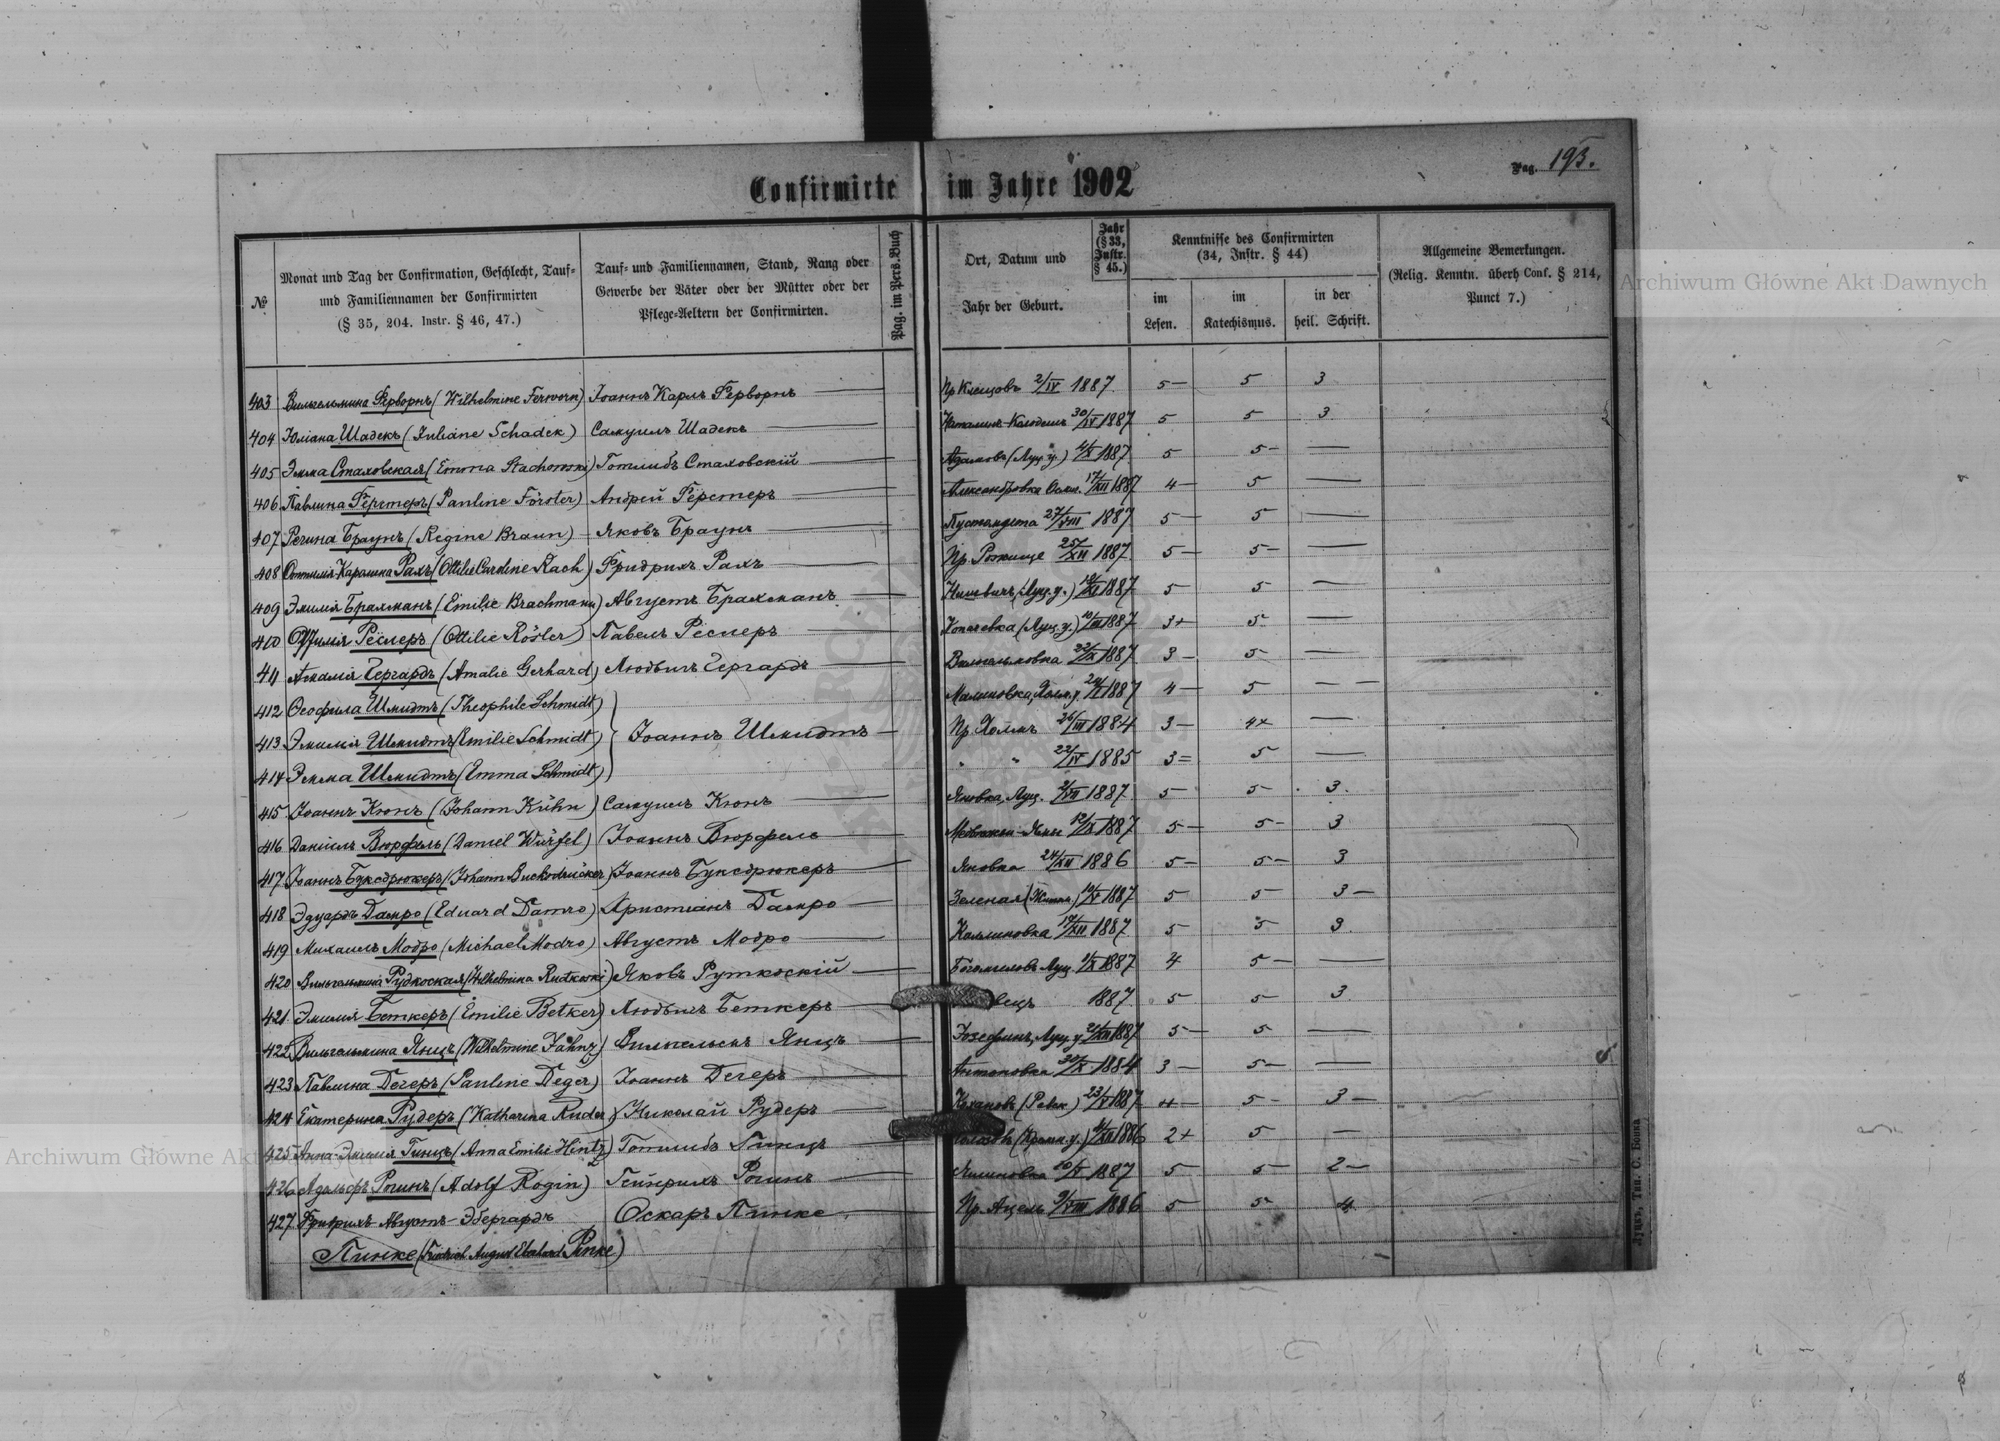 Confirmirte im Jahre 1902
Pag. 193.
№
Monat und Tag der Confirmation, Geschlecht, Tauf- und Familiennamen der Confirmirten (§ 35, 204. Instr. § 46, 47.)
Tauf- und Familiennamen, Stand, Rang oder Gewerbe der Väter oder der Mütter oder der Pflege-Aeltern der Confirmirten.
Pag. im Pers.Buch
Ort, Datum und Jahr der Geburt.
Jahr (§ 33, Instr. § 45.)
Kenntnisse des Confirmirten (34, Instr. § 44)
im Lesen.
im Katechismus.
in der heil. Schrift.
Allgemeine Bemerkungen. (Relig. Kenntn. überh Conf. § 214, Punct 7.)
403 Вильгельмина Ферворнъ (Wilhelmine Ferworn) Іоаннъ Карлъ Ферворнъ 2/IV 1887 5— 5 3
404 Юліана Шадекъ (Juliane Schadek) Самуилъ Шадекъ 30/IV 1887 5 5 3
405 Эмма Стаховская (Emma Stachowski) Готлибъ Стаховскій Адамовъ (Луц. у.) 1887 5 5— —
406 Павлина Фёрстеръ (Pauline Förster) Андрей Фёрстеръ Александровка 17/XII 1887 4— 5 —
407 Регина Браунъ (Regine Braun) Яковъ Браунъ 27/VIII 1887 5— 5 —
408 Оттилія Каролина Рахъ (Ottilie Caroline Rach) Фридрихъ Рахъ Пр. Рожище 25/XII 1887 5— 5— —
409 Эмилія Брахманъ (Emilie Brachmann) Августъ Брахманъ (Луц. у.) 1887 5 5 —
410 Оттилія Рёслеръ (Ottilie Rösler) Павелъ Рёслеръ Копачевка (Луц. у.) 10/III 1887 3+ 5— —
411 Амалія Гергардъ (Amalie Gerhard) Людвигъ Гергардъ 1887 3— 5— —
412 Ѳеофила Шмидтъ (Theophile Schmidt) Малиновка, Холм. у. 1887 4— 5 — —
413 Эмилія Шмидтъ (Emilie Schmidt) Іоаннъ Шмидтъ Пр. Холмъ 26/III 1884 3— 4x —
414 Эмма Шмидтъ (Emma Schmidt) " " 22/IV 1885 3= 5 —
415 Іоаннъ Кюнъ (Johann Kühn) Самуилъ Кюнъ Яновка, Луц. 1887 5— 5— 3
416 Даніилъ Вюрфель (Daniel Würfel) Іоаннъ Вюрфель 12/IX 1887 5— 5— 3
417 Іоаннъ Буксдрюкеръ (Johann Buchsdrücker) Іоаннъ Буксдрюкеръ Яновка 24/XII 1886 5— 5— 3
418 Эдуардъ Дамро (Eduard Damro) Христіанъ Дамро Зеленая 1887 5 5 3—
419 Михаилъ Модро (Michael Modro) Августъ Модро Калиновка 19/XII 1887 5 5 3
420 Вильгельмина Рудкоская (Wilhelmina Rudkoski) Яковъ Руткоскій 1887 4 5— —
421. Эмилія Беткеръ (Emilie Betker) Людвигъ Беткеръ 1887 5 5 3
422 Вильгельмина Янцъ (Wilhelmine Jahnz) Вильгельмъ Янцъ Юзефинъ, Луц. у. 1887 5— 5 —
423 Павлина Дегеръ (Pauline Deger) Іоаннъ Дегеръ Антоновка 30/IX 1884 3— 5— —
424 Екатерина Рудеръ (Katharina Ruder) Николай Рудеръ 23/V 1887 4— 5— 3—
425 Анна-Эмилія Гинцъ (Anna Emilie Hintz) Готлибъ Гинцъ (Кремен. у.) 1886 2+ 5 —
426 Адольфъ Рогинъ (Adolf Rogin) Гейнрихъ Рогинъ 10/V 1887 5— 5— 2—
427 Фридрихъ Августъ-Эбергардъ Оскаръ Пинке 9/VIII 1886 5 5— 4
Пинке (Friedrich August Eberhard Pinke)
Луцкъ, Тип. С. Бонка
Archiwum Główne Akt Dawnych
Archiwum Główne Akt Dawnych